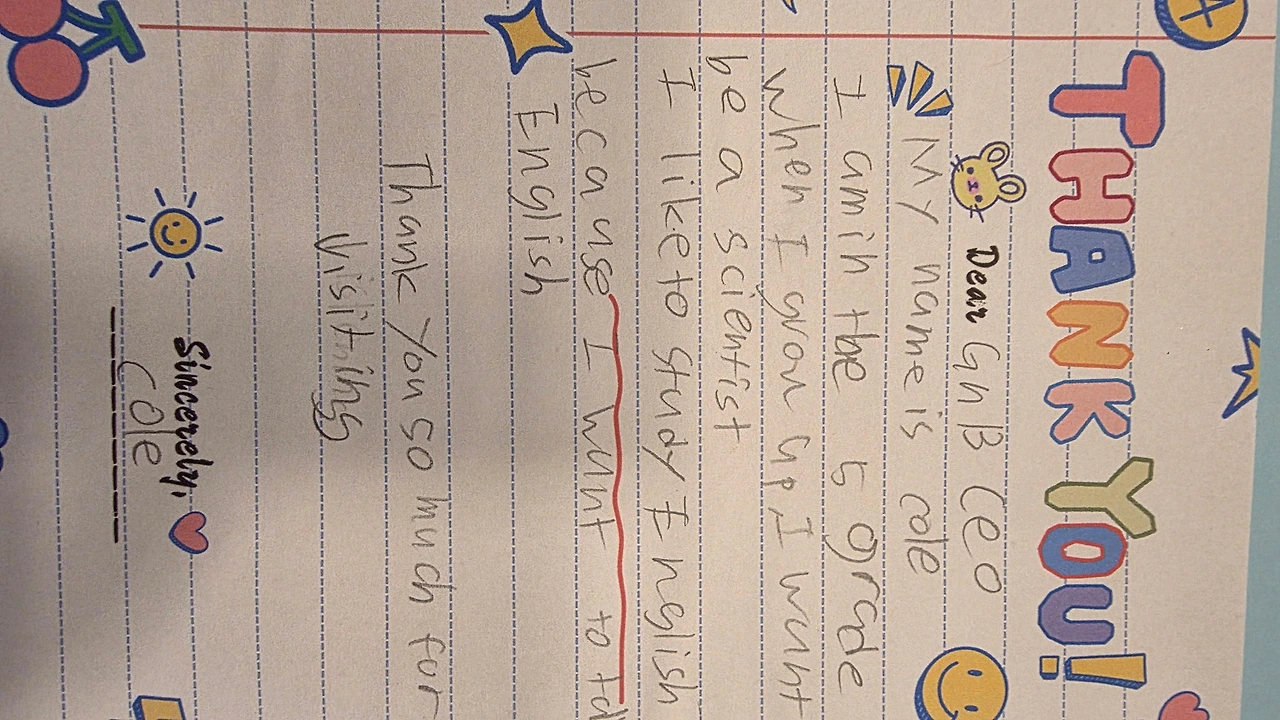 THANK YOU!
Dear GnB CEO
My name is cole
I am in the 5 grade
when I grow up, I wunt
be a scientist
I like to study English
because I wunt to
English
Thank you so much for
visiting
Sincerely,
cole